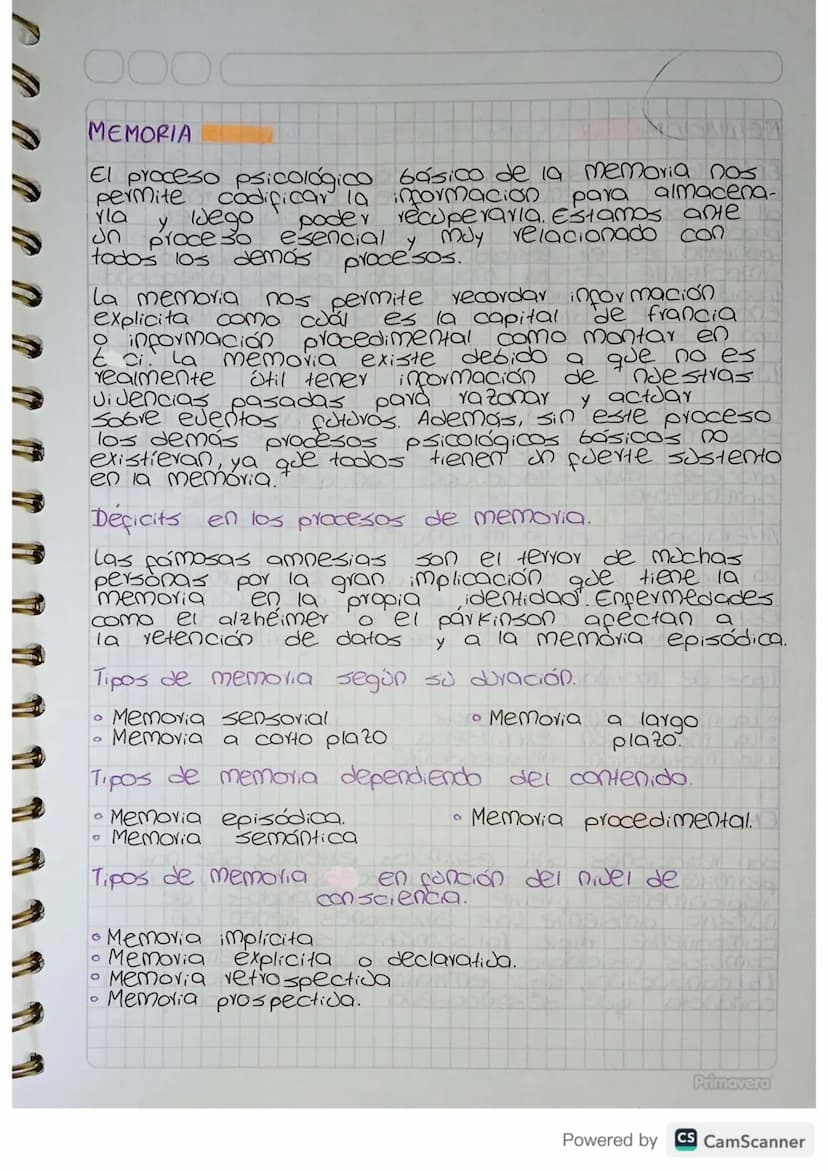 MEMORIA
El proceso psicológico básico de la memoria nos
permite codificar la información para almacena-
rla y luego poder recuperarla. Estamos ante
un proceso esencial y muy relacionado con
todos los demás procesos.
La memoria nos permite recordar información
explicita como cuál es la capital de francia
o información procedimental como montar en
ci. La memoria existe debido a que no es
realmente útil tener información de nuestras
vivencias pasadas para razonar y actuar
sobre eventos futuros. Además, sin este proceso
los demás procesos psicológicos básicos no
existieran, ya que todos tienen un fuerte sustento
en la memoria.
Déficits en los procesos de memoria.
Las fámosas amnesias son el terror de muchas
personas por la gran implicación que tiene la
memoria en la propia identidad. Enfermedades
como el alzhéimer o el párkinson afectan a
la retención de datos y a la memoria episódica.
Tipos de memoria según su duración.
• Memoria sensorial • Memoria a largo
• Memoria a corto plazo plazo.
Tipos de memoria dependiendo del contenido.
• Memoria episódica. • Memoria procedimental.
• Memoria semántica
Tipos de memoria en función del nivel de
consciencia.
• Memoria implícita
• Memoria explícita o declarativa.
• Memoria retrospectiva
• Memoria prospectiva.
Primavera
Powered by CS CamScanner